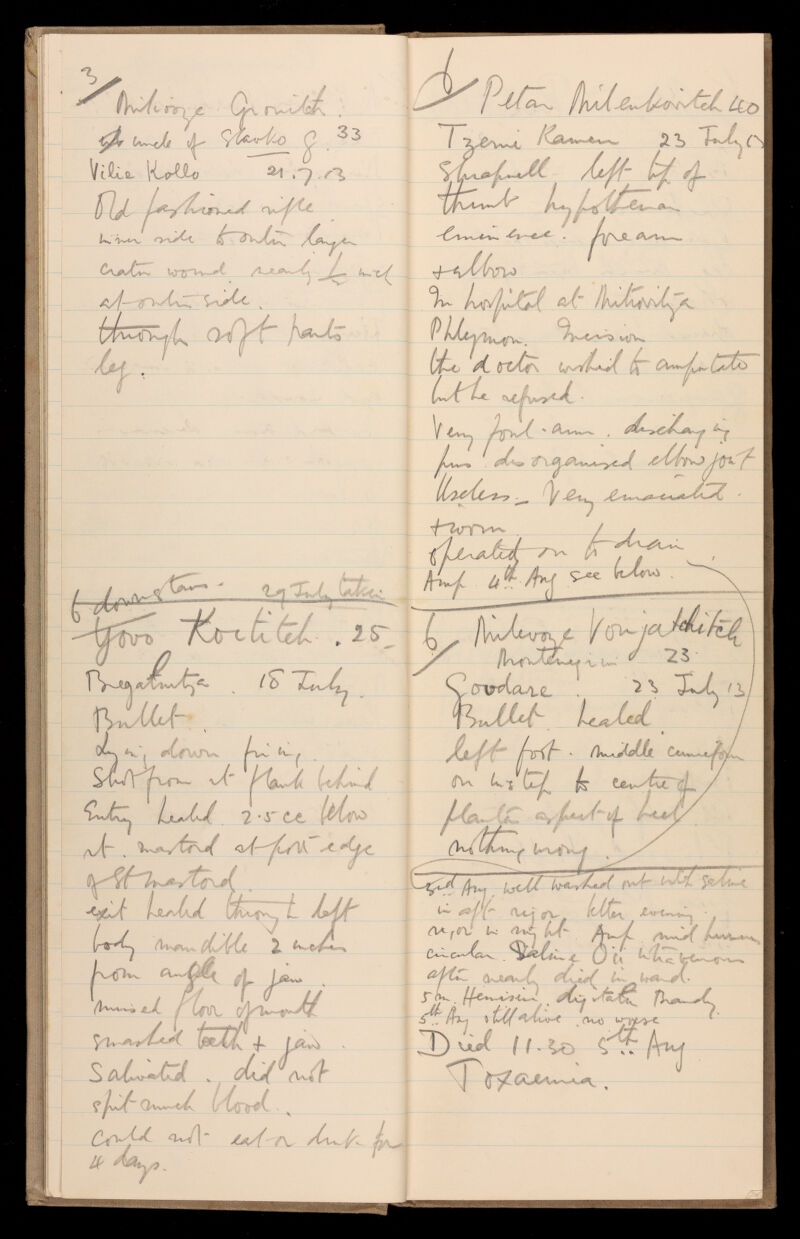 3/
Milivoze Gronitch.
uncle of Stavko G. 33
Vilia Kollo 21.7.13
Old fashioned rifle
inner side to outer larger
crater wound nearly inch
at outer side.
through soft parts
leg.
6 downstairs. 29 July taken
Yovo Koctitch. 25
Bregalnitza. 18 July.
Bullet
Lying down firing.
Shot from rt flank behind
Entry healed 2.5 cc below
rt. mastoid at post edge
of St mastoid.
exit healed through left
body mandible 2 inches
from angle of jaw.
missed floor of mouth
smashed teeth + jaw.
Salivated. did not
spit much blood.
could not eat or drink for
4 days.
6/
Petar Milenkovitch 40
Tzerni Kamen 23 July 13
Shrapnell left tip of
thumb hypothenar
eminence. forearm
+ elbow
In hospital at Mitrovitza
Phlegmon. Incision
the doctor wished to amputate
but he refused.
Very foul arm. discharging
pus disorganised elbow joint
Useless – Very emaciated.
+ worn
operated on to drain
Amp 4th Aug see below.
6/ Milevoze Voujatchitch
Montenegrin 23
Goodare. 23 July 13
Bullet healed.
left foot. middle cuneiform
on instep to centre of
plantar aspect of heel
nothing wrong.
3rd Aug well washed out with saline
in aft rigor better evening.
rigor in night. Amp. mid humerus
circular. Saline Oii intravenous
after nearly died in ward.
5 m. Hemisin, digitalin Brandy.
5th Aug still alive no worse
Died 11.30 5th Aug
Toxaemia.